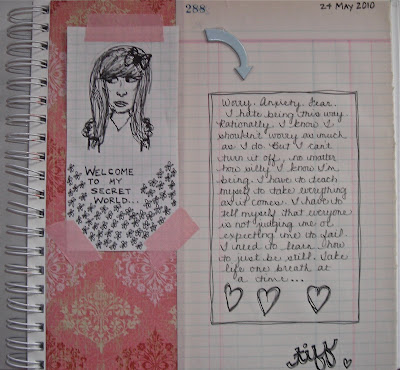 288
24 MAY 2010
WELCOME
TO MY
SECRET
WORLD...
Worry. Anxiety. Fear.
I hate being this way.
Rationally, I know I
shouldn't worry as much
as I do. But I can't
turn it off, no matter
how silly I know I'm
being. I have to teach
myself to take everything
as it comes. I have to
tell myself that everyone
is not judging me or
expecting me to fail.
I need to learn how
to just be still. Take
life one breath at
a time...
tiff